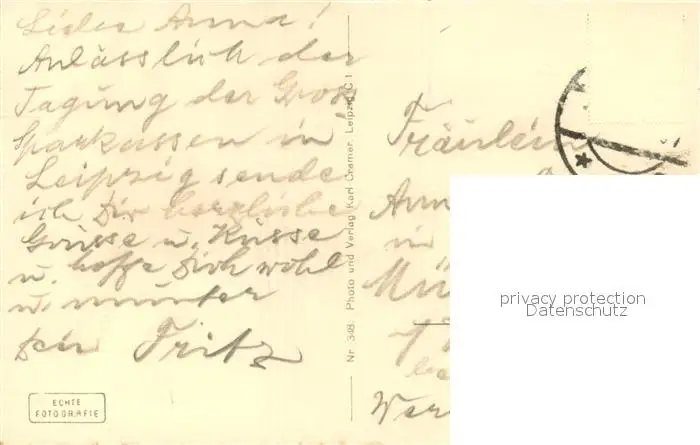 Liebe Anna!
Anlässlich der
Tagung der Gross
Sparkassen in
Leipzig sende
ich Dir herzliche
Grüsse u. Küsse
u. hoffe Dich wohl
u. munter
Dein Fritz
ECHTE
FOTOGRAFIE
Nr. 348. Photo und Verlag Karl Cramer, Leipzig C 1
Fräulein
in
privacy protection
Datenschutz